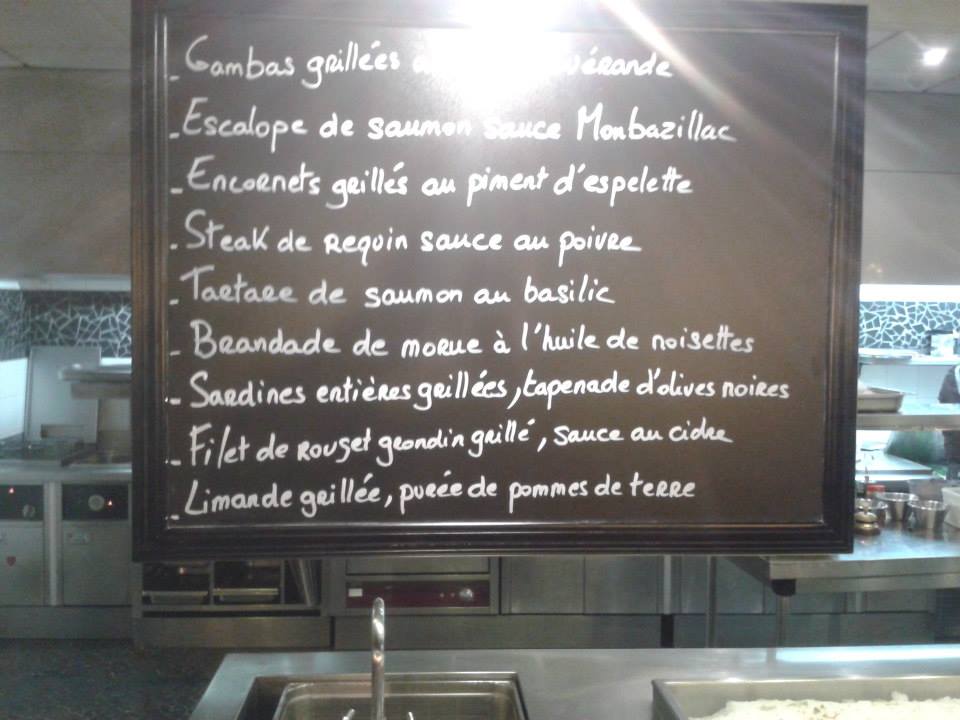 - Gambas grillées
- Escalope de saumon sauce Monbazillac
- Encornets grillés au piment d'espelette
- Steak de requin sauce au poivre
- Tartare de saumon au basilic
- Brandade de morue à l'huile de noisettes
- Sardines entières grillées, tapenade d'olives noires
- Filet de rouget grondin grillé, sauce au cidre
- Limande grillée, purée de pommes de terre